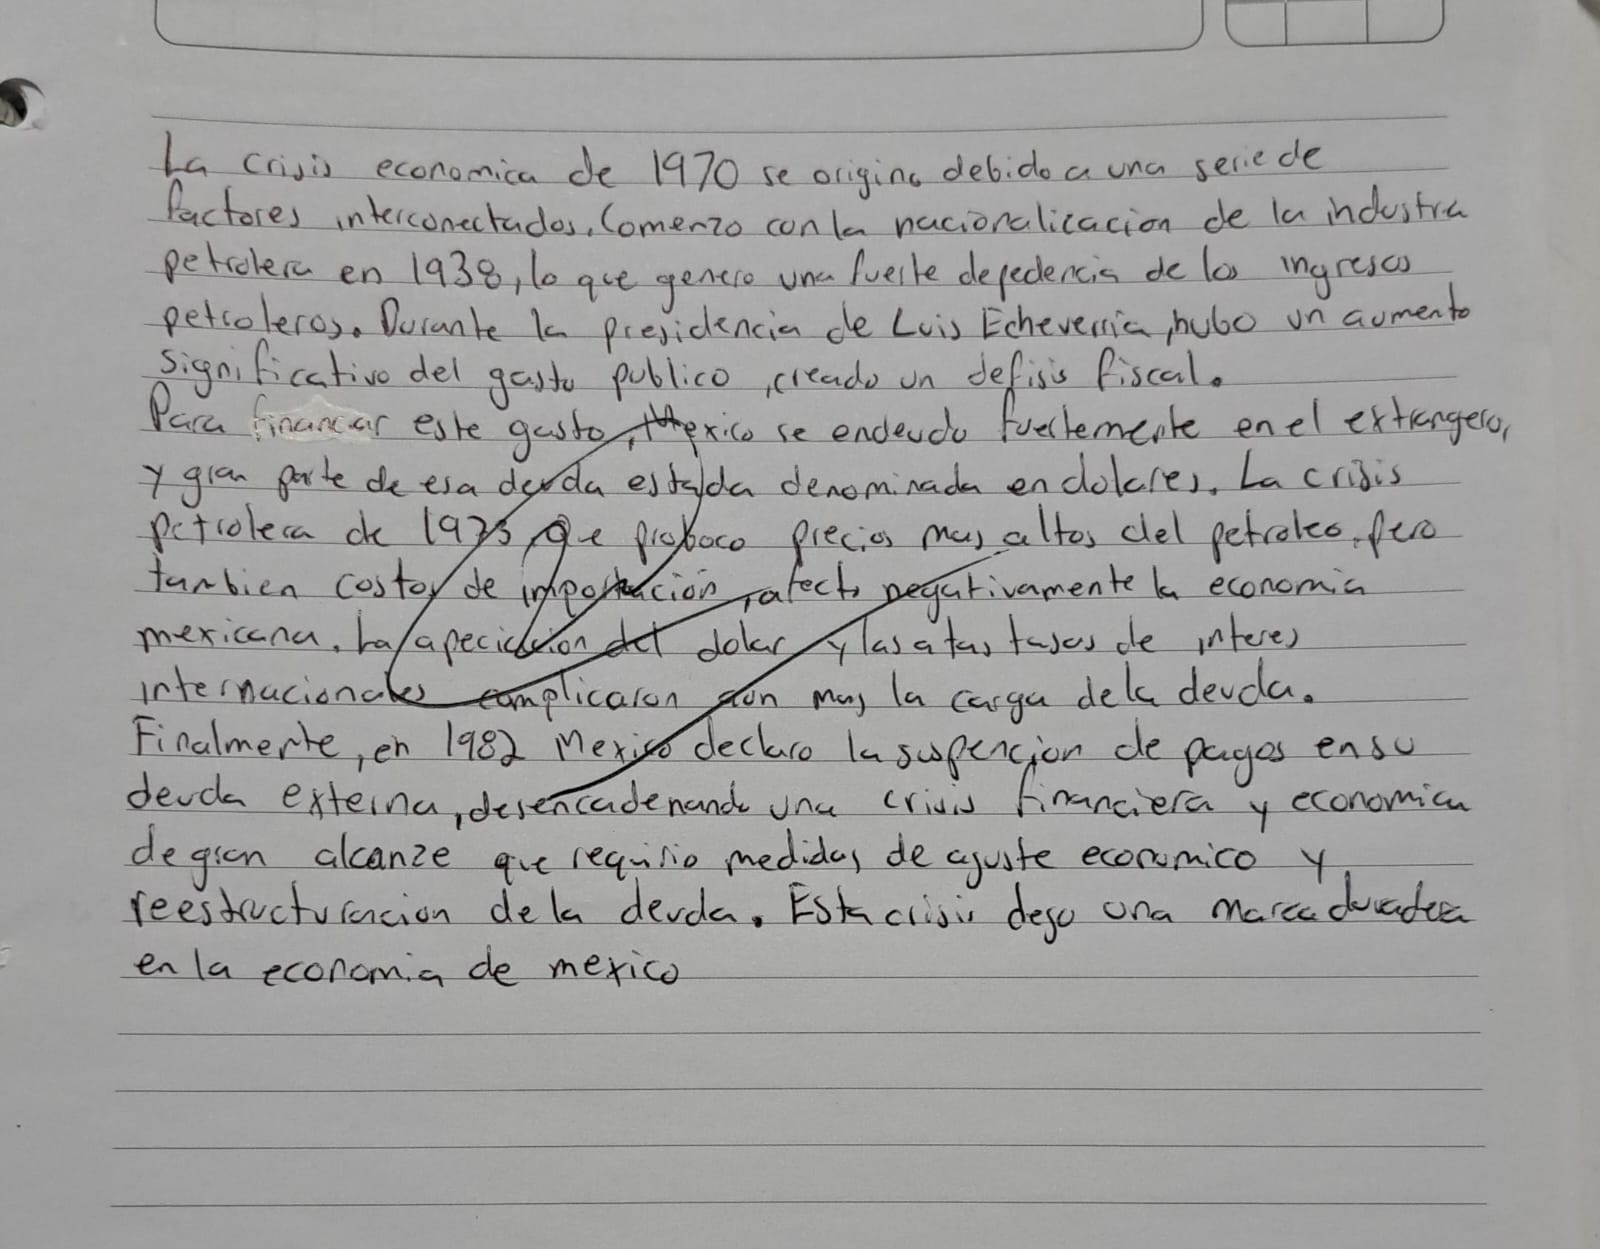 La crisis economica de 1970 se origino debido a una serie de
factores interconectados. Comenzo con la nacionalicacion de la industra
petrolera en 1938, lo que genero una fuerte depedencia de los ingresos
petroleros. Durante la presidencia de Luis Echeverria, hubo un aumento
significativo del gasto publico, creado un defisis fiscal.
Para financiar este gasto, Mexico se endeudo fuertemente en el extrangero,
y gran parte de esa deuda estaba denominada en dolares. La crisis
petrolera de 1973, que proboco precios mas altos del petroleo, pero
tambien costos de importacion, afecto negativamente la economia
mexicana. La apeciacion del dolar y las atas tasas de interes
internacionales complicaron aun mas la carga de la deuda.
Finalmente, en 1982 Mexico declaro la suspencion de pagos en su
deuda externa, desencadenando una crisis financiera y economica
de gran alcanze que requirio medidas de ajuste economico y
reestructuracion de la deuda. Esta crisis dejo una marca duradera
en la economia de mexico